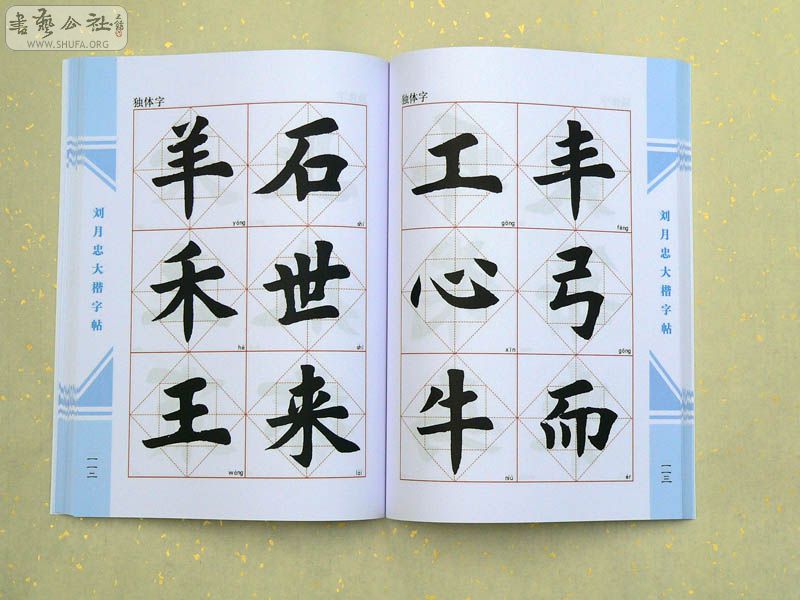 書藝公社
WWW.SHUFA.ORG
独体字
羊 石
yáng shí
禾 世
hé shì
王 来
wáng lái
刘月忠大楷字帖
一一二
独体字
工 丰
gōng fēng
心 弓
xīn gōng
牛 而
niú ér
刘月忠大楷字帖
一一三